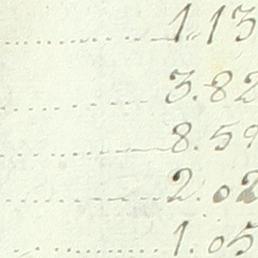 1.13
3.82
8.59
2.02
1.05